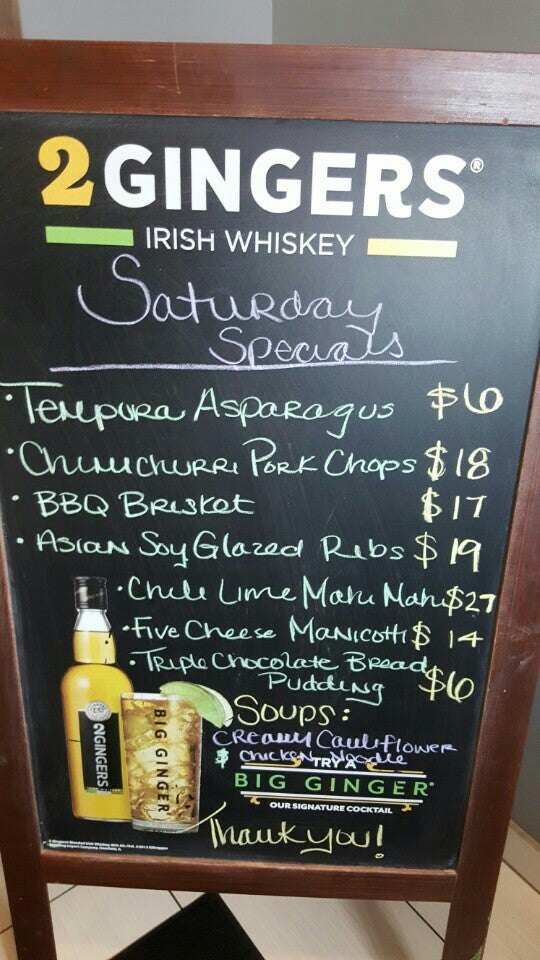 2 GINGERS®
IRISH WHISKEY
Saturday
Specials
• Tempura Asparagus $6
• Chimichurri Pork Chops $18
• BBQ Brisket $17
• Asian Soy Glazed Ribs $19
• Chile Lime Mahi Mahi $27
• Five Cheese Manicotti $14
• Triple Chocolate Bread
Pudding $6
Soups:
Creamy Cauliflower
& Chicken Noodle
TRY A
BIG GINGER®
OUR SIGNATURE COCKTAIL
Thank you!
2GINGERS
BIG GINGER